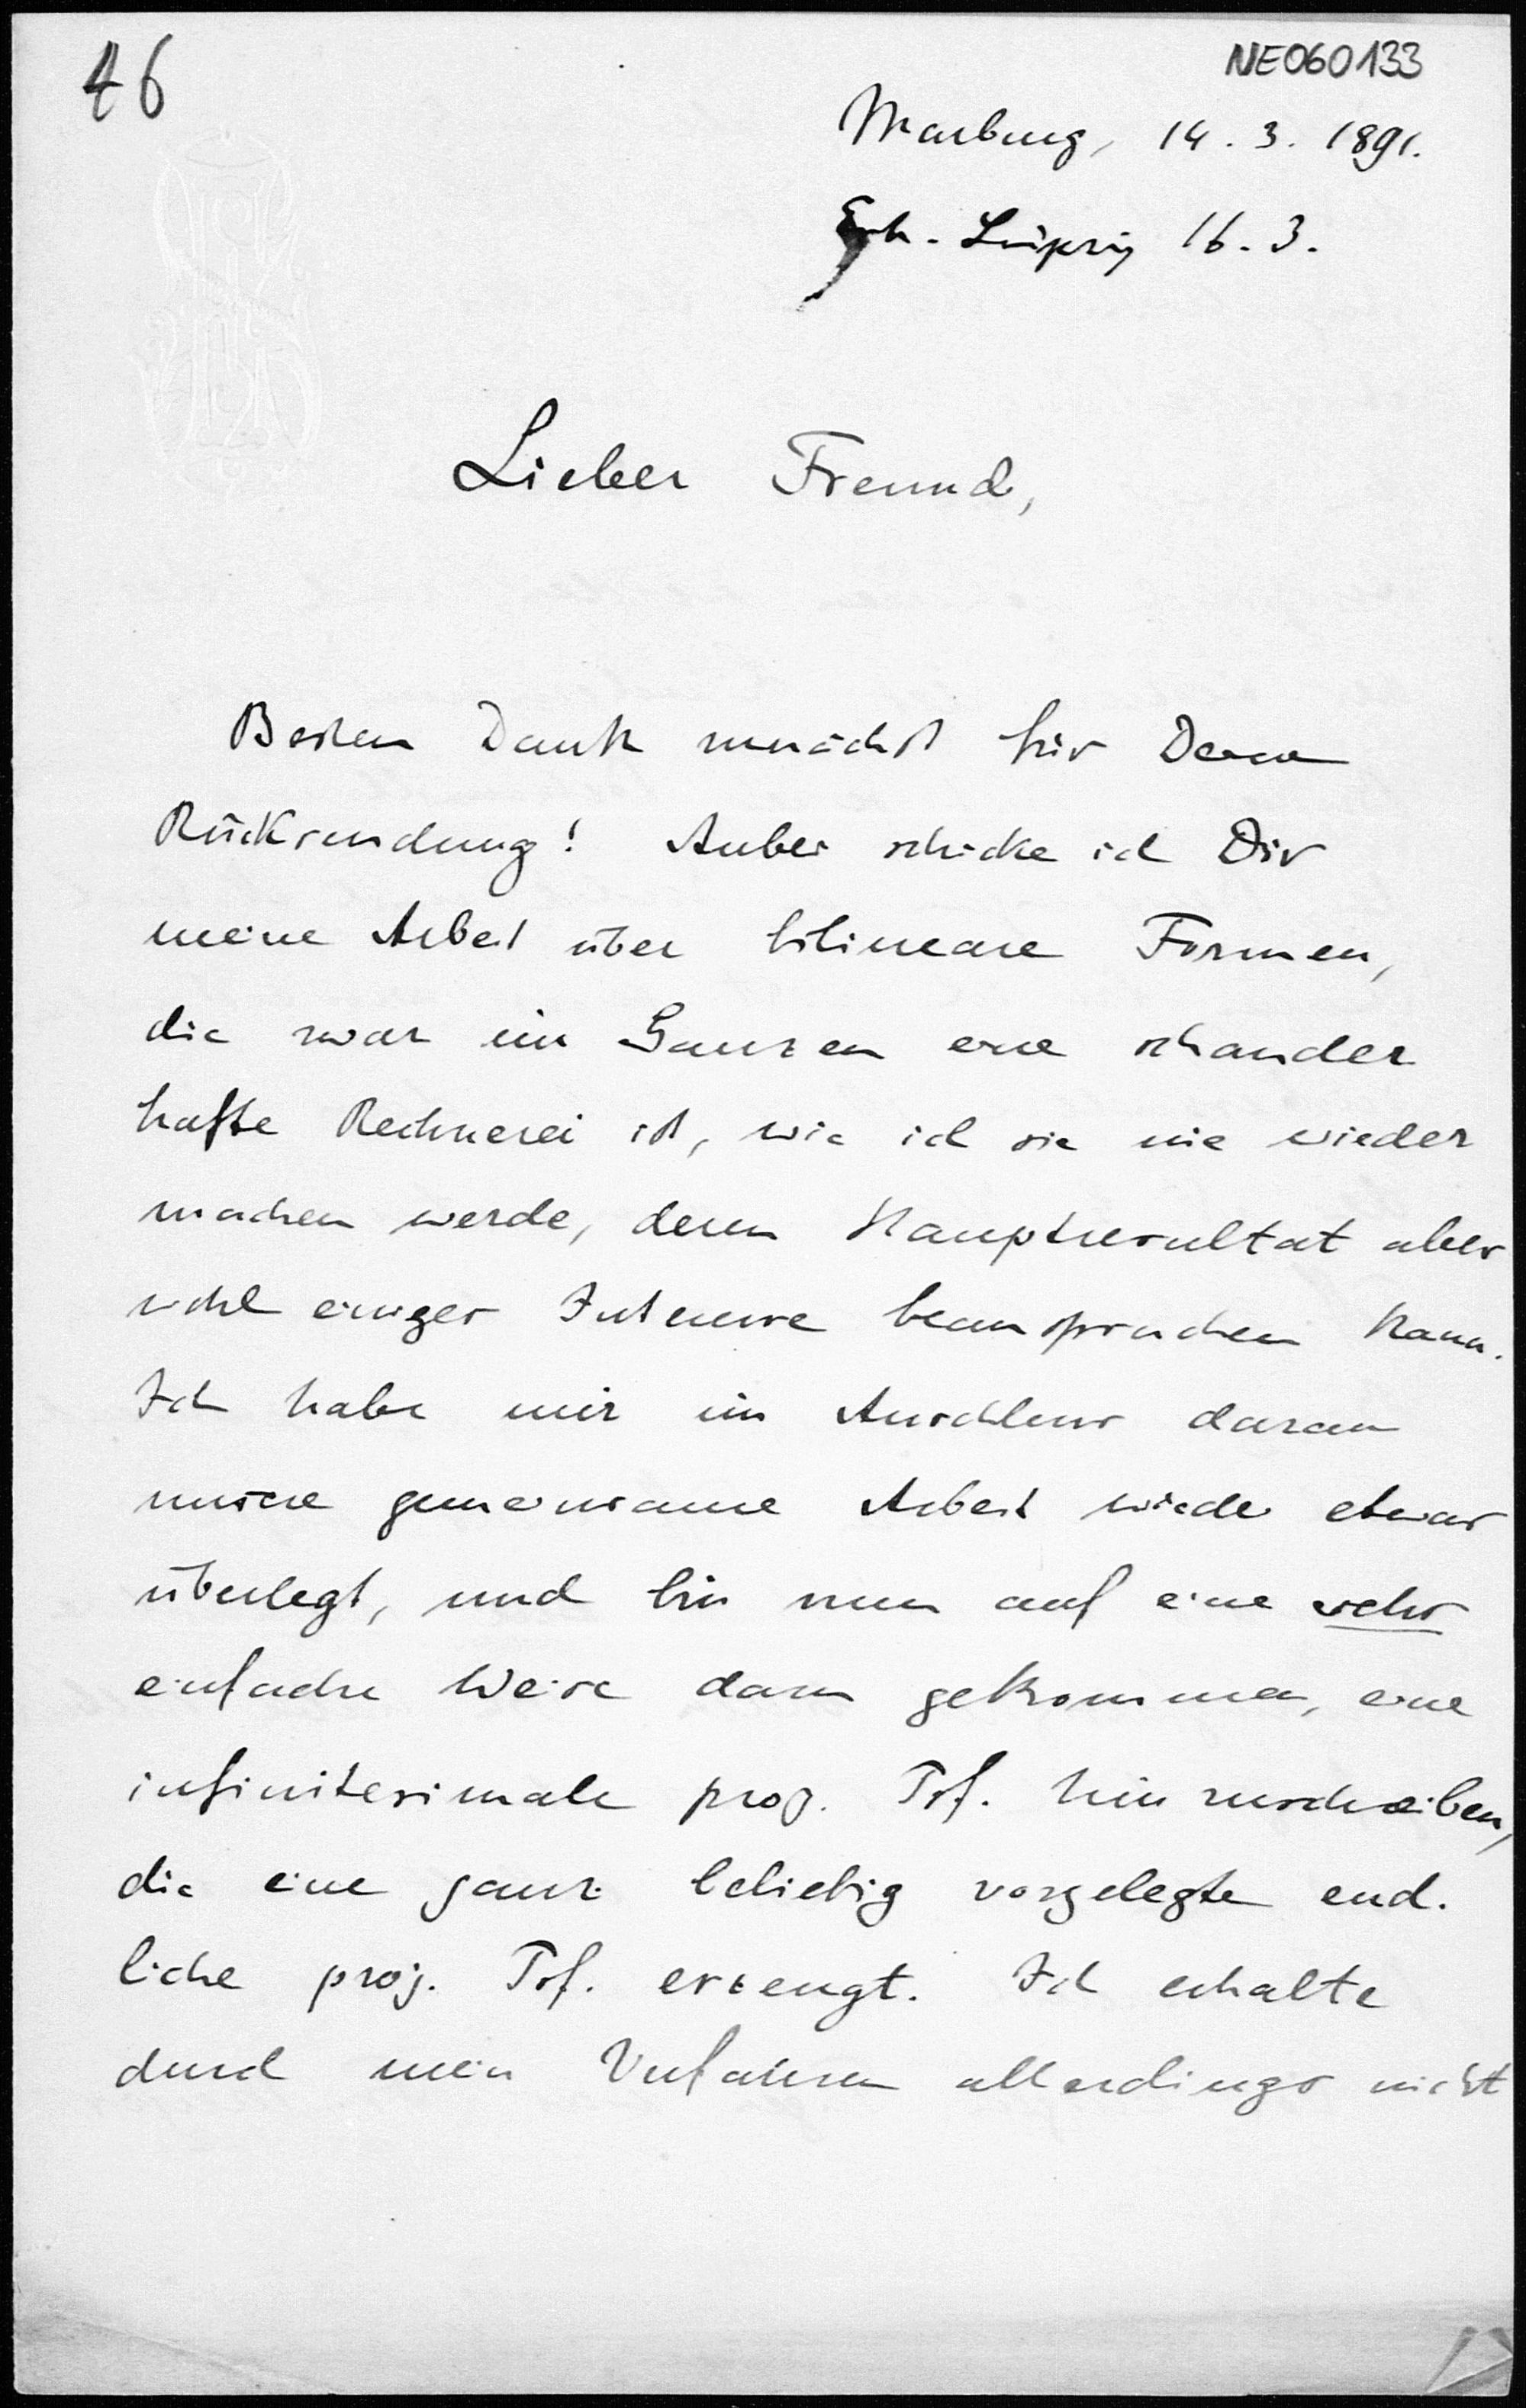 46
NE060133
Marburg, 14. 3. 1891.
Erh. Leipzig 16. 3.
Lieber Freund,
Besten Dank zunächst für Deine
Rücksendung! Anbei schicke ich Dir
meine Arbeit über bilineare Formen,
die zwar im Ganzen eine schauder
hafte Rechnerei ist, wie ich sie nie wieder
machen werde, deren Hauptresultat aber
wohl einiges Interesse beanspruchen kann.
Ich habe mir im Anschluss daran
unsere gemeinsame Arbeit wieder etwas
überlegt, und bin nun auf eine sehr
einfache Weise dazu gekommen, eine
infinitesimale proj. Trf. hinzuschreiben,
die eine ganz beliebig vorgelegte end-
liche proj. Trf. erzeugt. Ich erhalte
durch mein Verfahren allerdings nicht